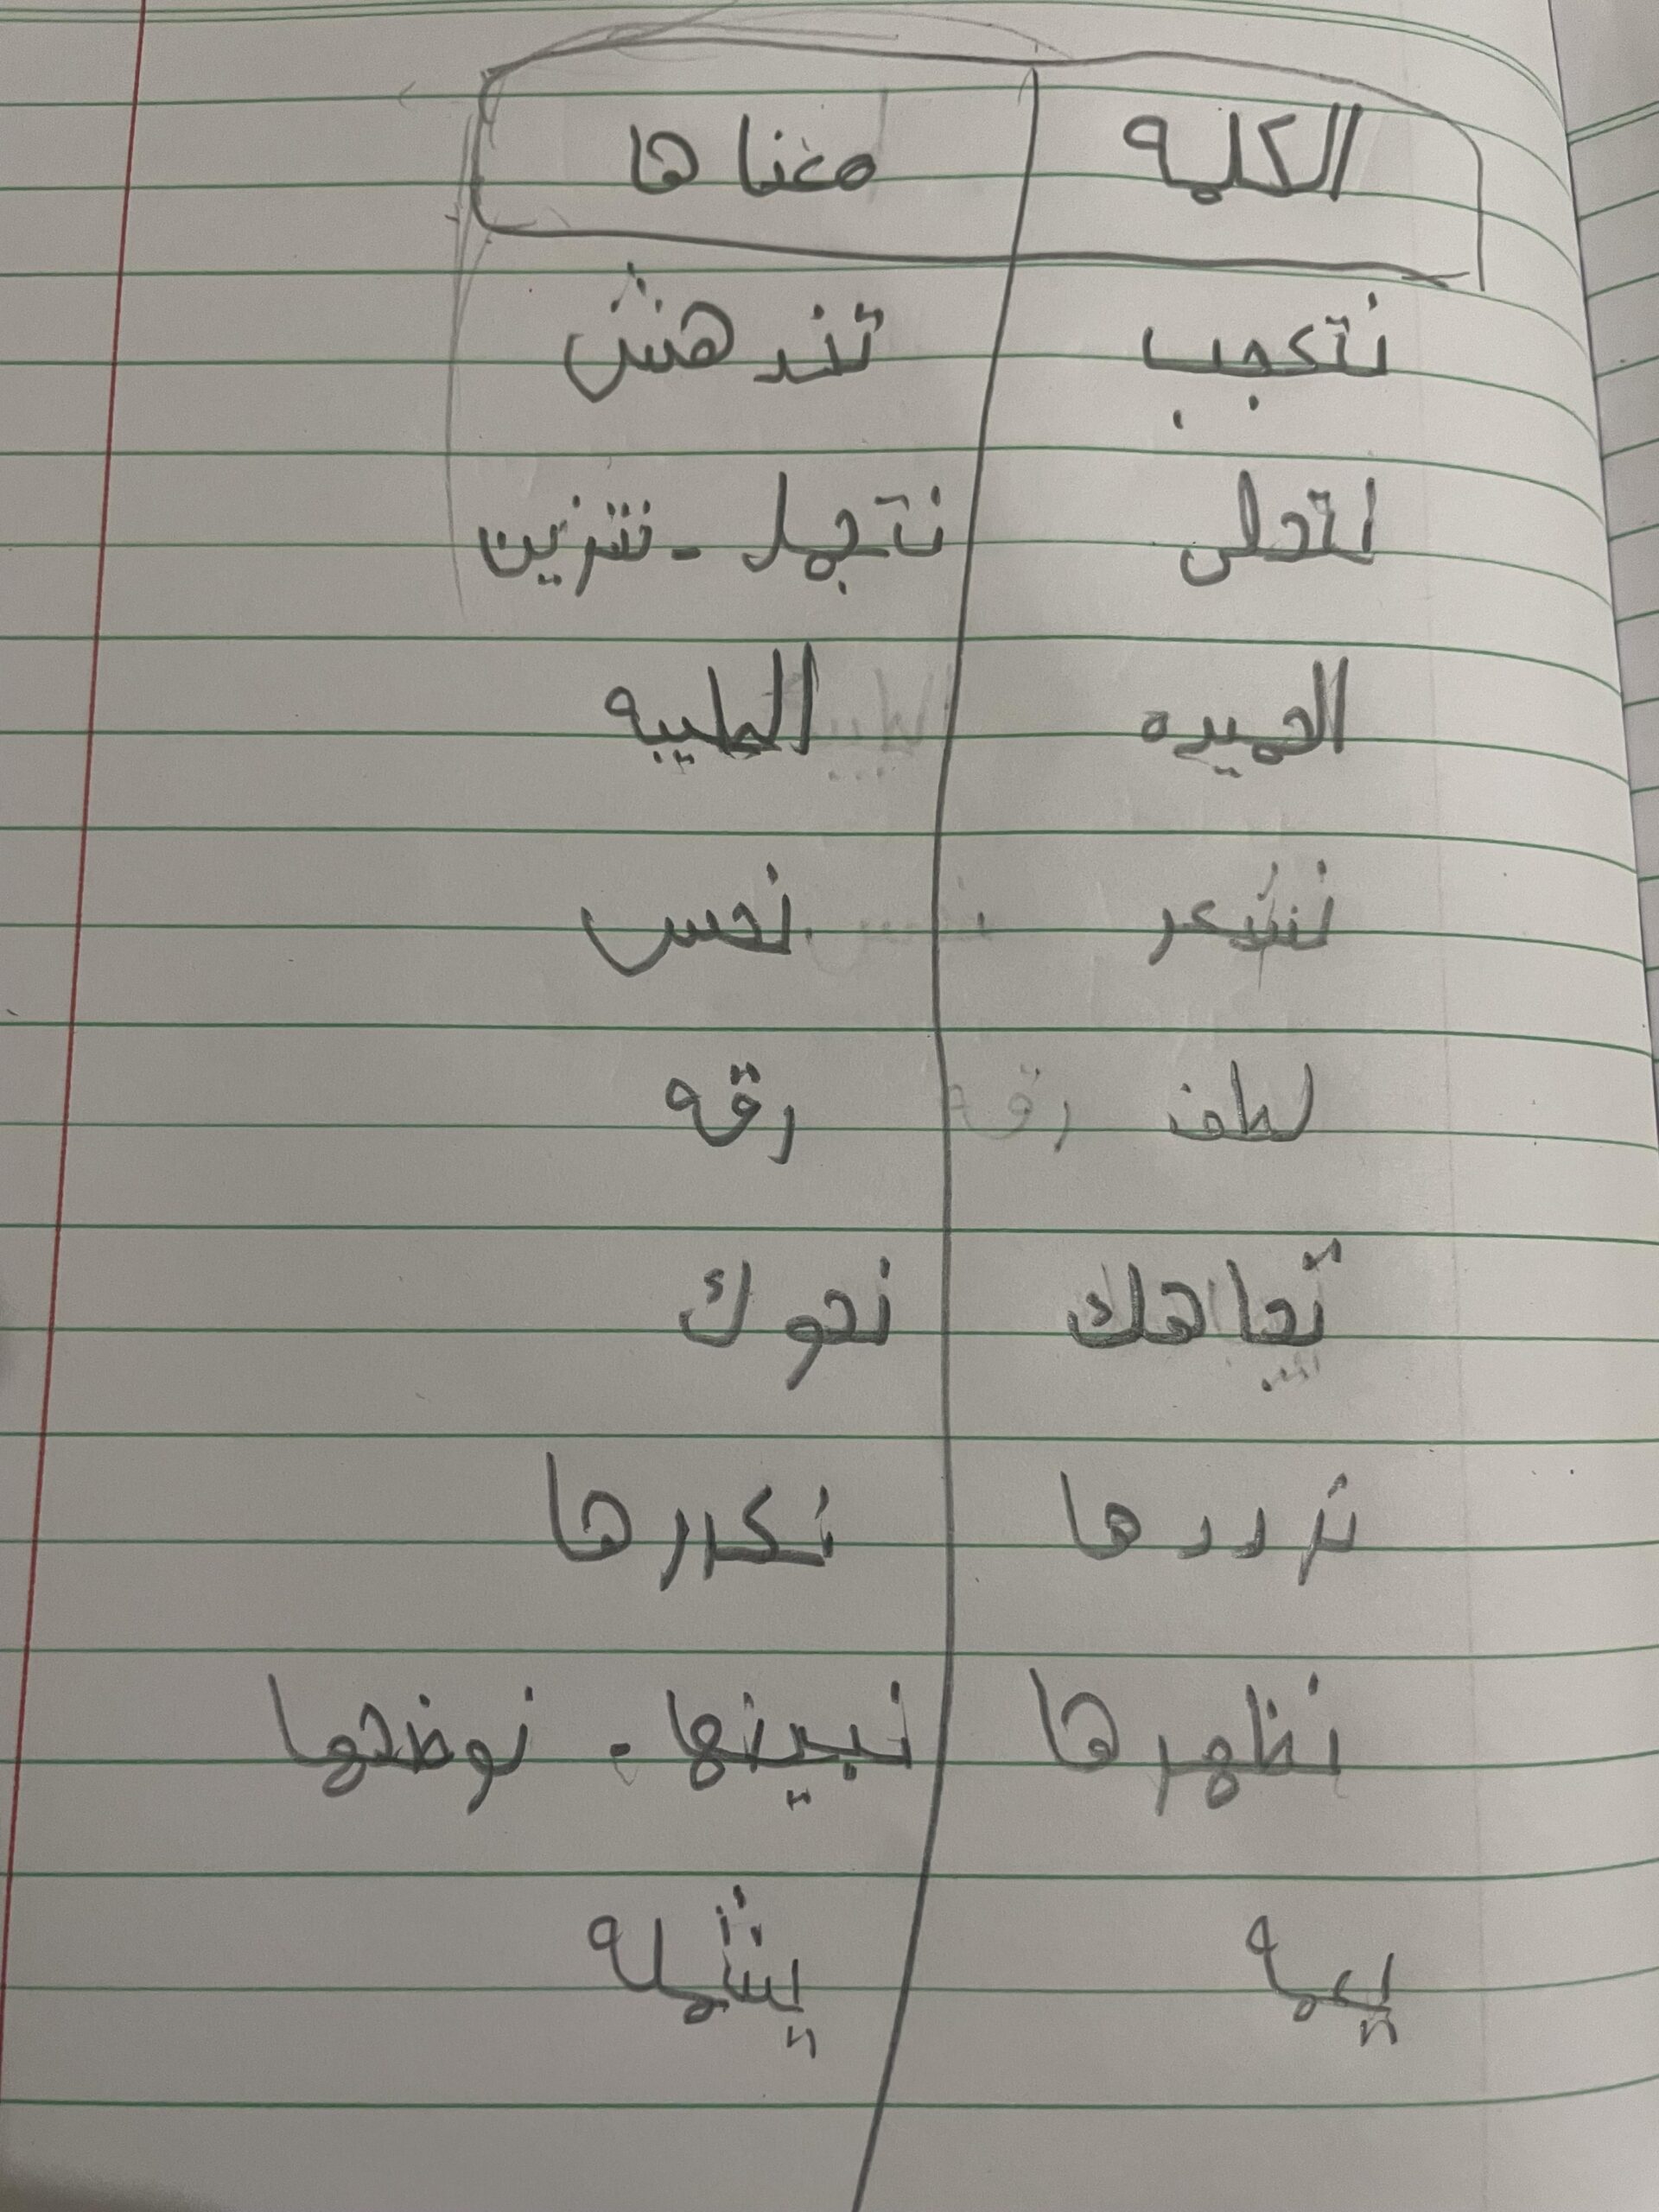 الكلمه معناها
نتعجب تندهش
نتحلى نتجمل - نتزين
الحميده الطيبه
نشعر نحس
لطف رقه
تجاهك نحوك
نرددها نكررها
نظهرها نبينها - نوضحها
يعمه يشمله